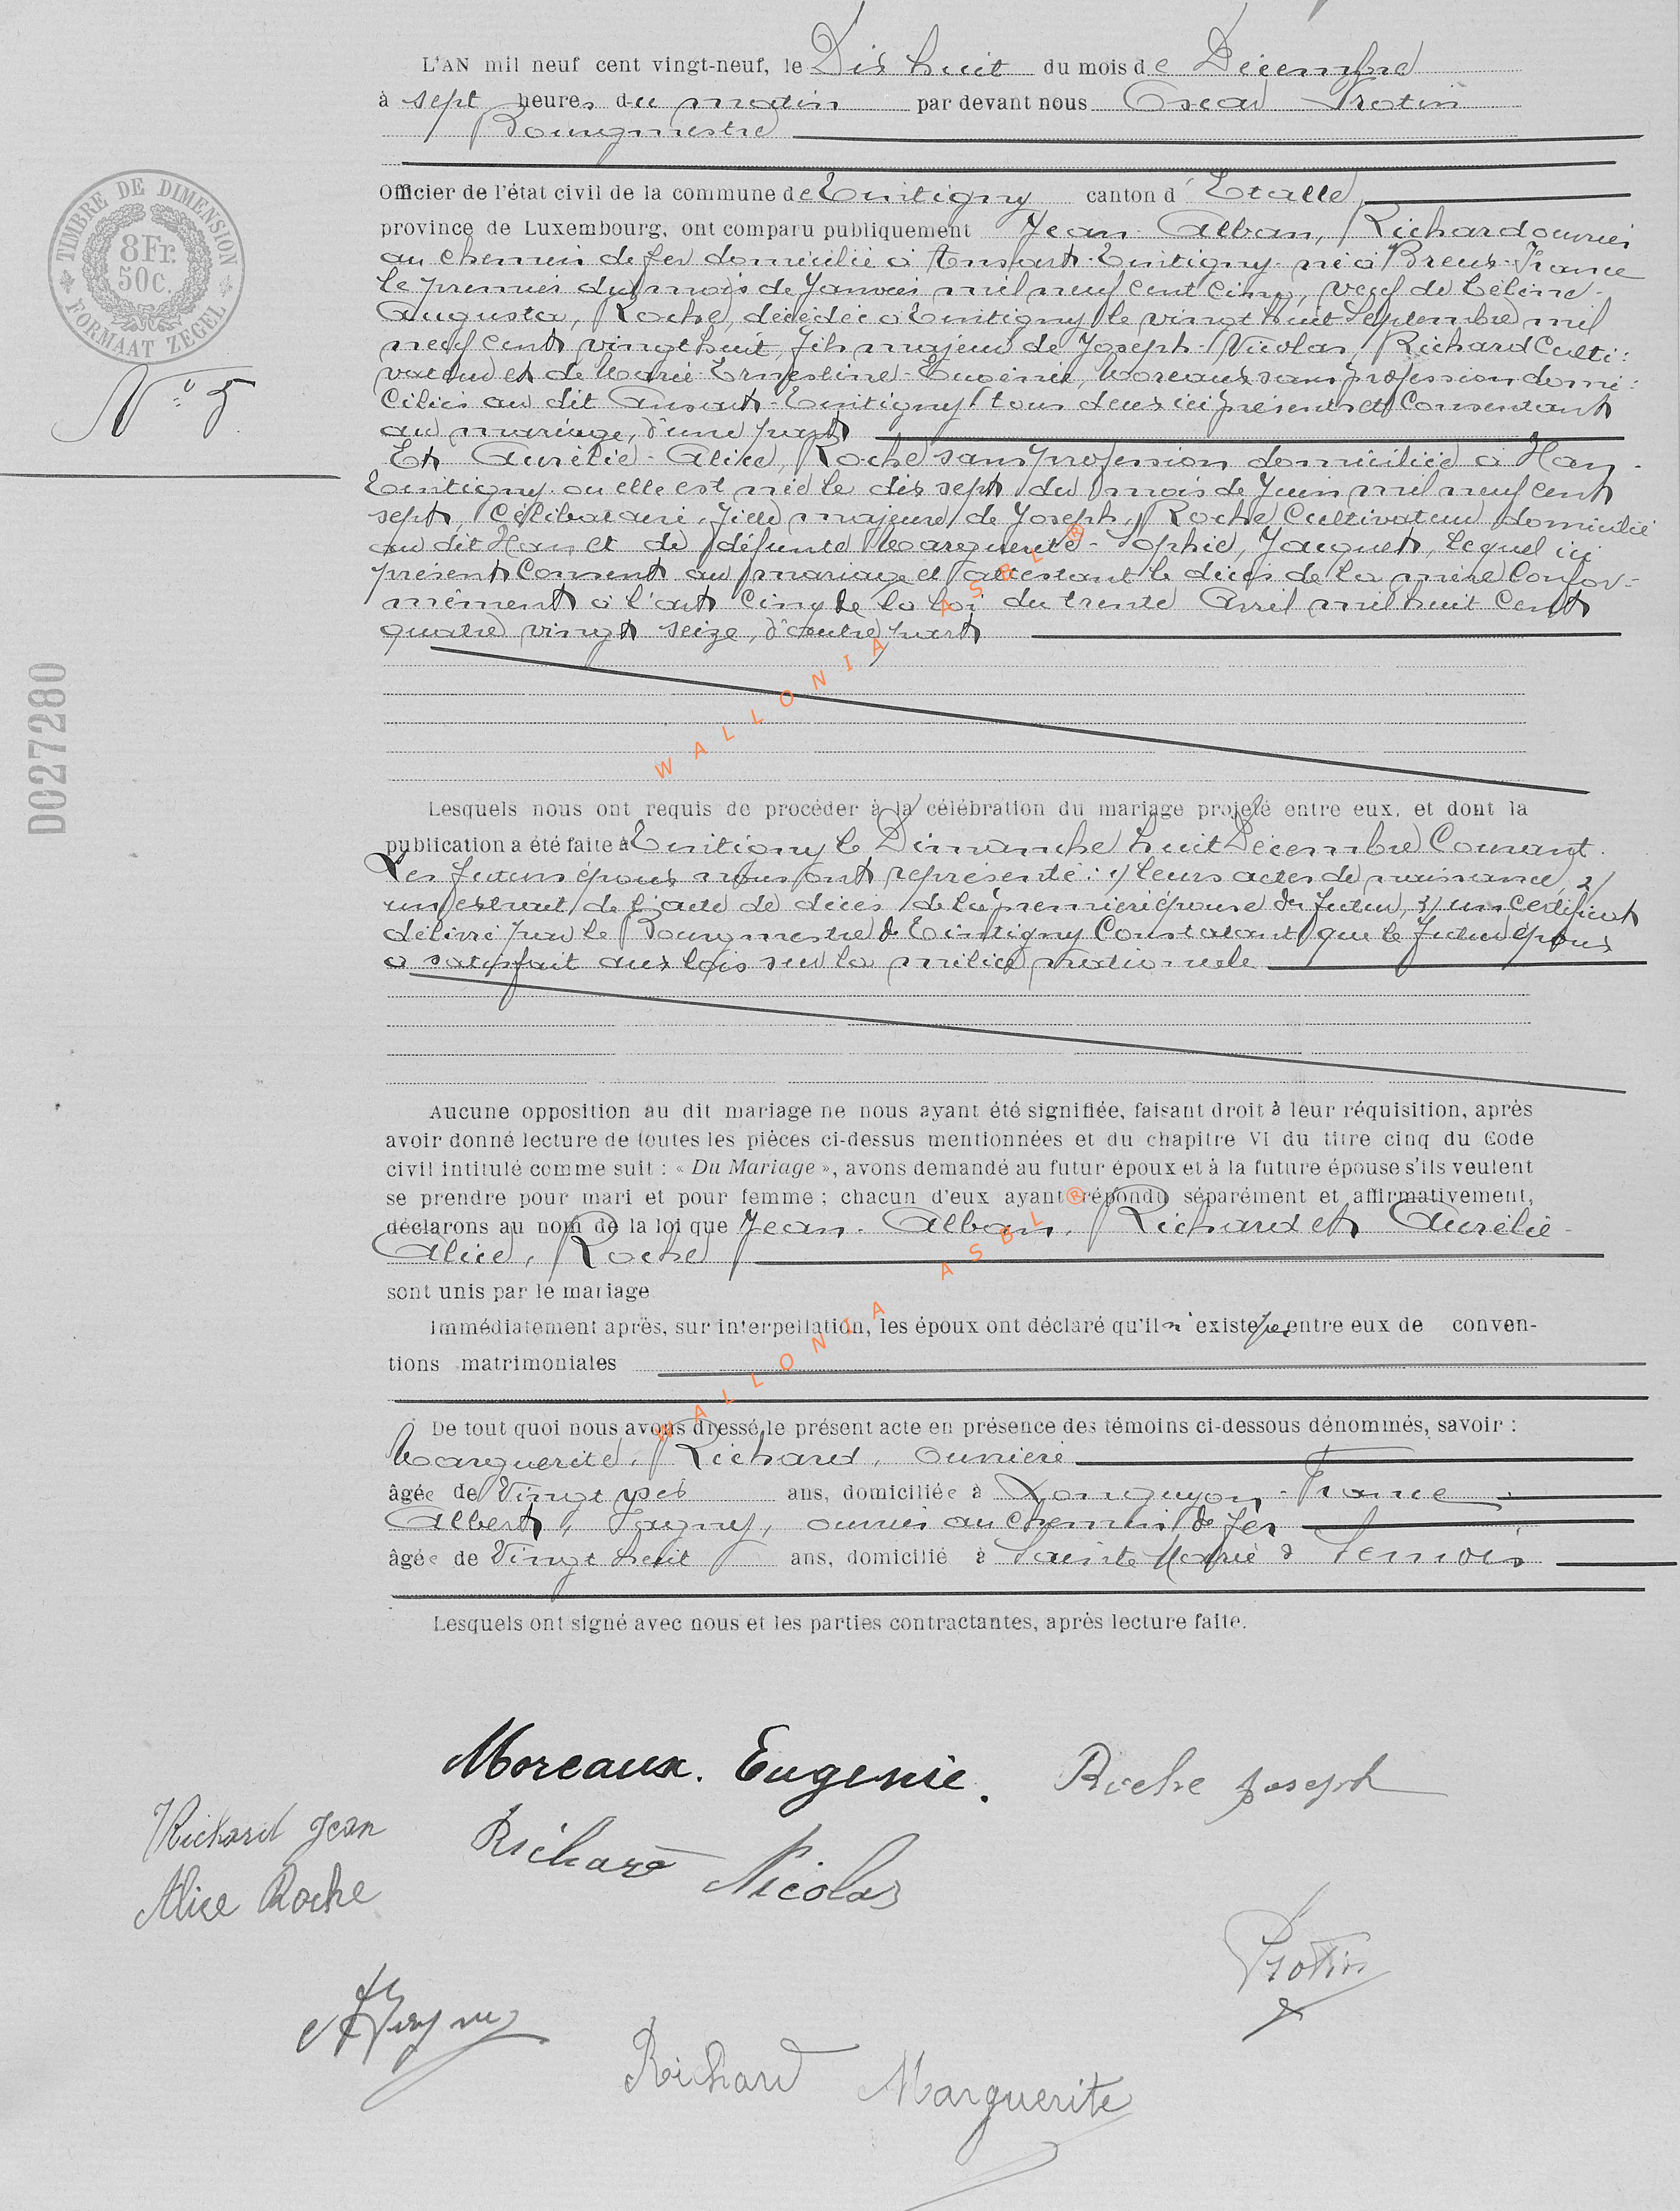 L'AN mil neuf cent vingt-neuf, le Dix huit du mois de Décembre
à sept heures du matin par devant nous Oscar Protin
Bourgmestre
Officier de l'état civil de la commune de Tintigny canton d'Etalle
province de Luxembourg, ont comparu publiquement Jean-Alban, Richard ouvrier
au chemin de fer domicilié à Ansart-Tintigny né à Breux-France
le premier du mois de Janvier mil neuf cent cinq, veuf de Céline-
Augusta, Roche, décédée à Tintigny le vingt huit Septembre mil
neuf cent vingt huit, fils majeur de Joseph-Nicolas, Richard Culti:
vateur et de Marie-Ernestine-Eugénie, Moreaux sans profession domi:
ciliés au dit Ansart-Tintigny tous deux ici présents et Consentant
au mariage, d'une part
Et Aurélie-Alice, Roche sans profession domiciliée à Han-
Tintigny où elle est née le dix sept du mois de Juin mil neuf cent
sept, Célibataire, fille majeure de Joseph, Roche Cultivateur domicilié
au dit Han et de défunte Marguerite-Sophie, Jacquet, lequel ici
présent Consent au mariage et attestant le décès de la mère Confor-
mément à l'art Cinq de la loi du trente Avril mil huit Cent
quatre vingt seize, d'autre part
Lesquels nous ont requis de procéder à la célébration du mariage projeté entre eux, et dont la
publication a été faite à Tintigny le Dimanche huit Décembre Courant.
Les futurs époux nous ont représenté: 1/ leurs actes de naissance, 2/
un extrait de l'acte de décès de la première épouse du futur, 3/ un certificat
délivré par le Bourgmestre de Tintigny Constatant que le futur époux
a satisfait aux lois sur la milice nationale
Aucune opposition au dit mariage ne nous ayant été signifiée, faisant droit à leur réquisition, après
avoir donné lecture de toutes les pièces ci-dessus mentionnées et du chapitre VI du titre cinq du Code
civil intitulé comme suit : « Du Mariage », avons demandé au futur époux et à la future épouse s'ils veulent
se prendre pour mari et pour femme ; chacun d'eux ayant répondu séparément et affirmativement,
déclarons au nom de la loi que Jean-Alban, Richard et Aurélie-
Alice, Roche
sont unis par le mariage
Immédiatement après, sur interpellation, les époux ont déclaré qu'il n'existe pas entre eux de conven-
tions matrimoniales
De tout quoi nous avons dressé le présent acte en présence des témoins ci-dessous dénommés, savoir :
Marguerite, Richard, ouvrière
âgée de Vingt ans, domiciliée à Longuyon-France
Albert, ouvrier au chemin de fer
âgé de Vingt huit ans, domicilié à Sainte Marie s/ Semois
Lesquels ont signé avec nous et les parties contractantes, après lecture faite.
Moreaux. Eugenie. Roche Joseph
Richard Jean
Richard Nicolas
Alice Roche
Protin
Richard Marguerite
TIMBRE DE DIMENSION
8 Fr.
50 c.
FORMAAT ZEGEL
N° 5
D027280
WALLONIA ASBL ®
WALLONIA ASBL ®